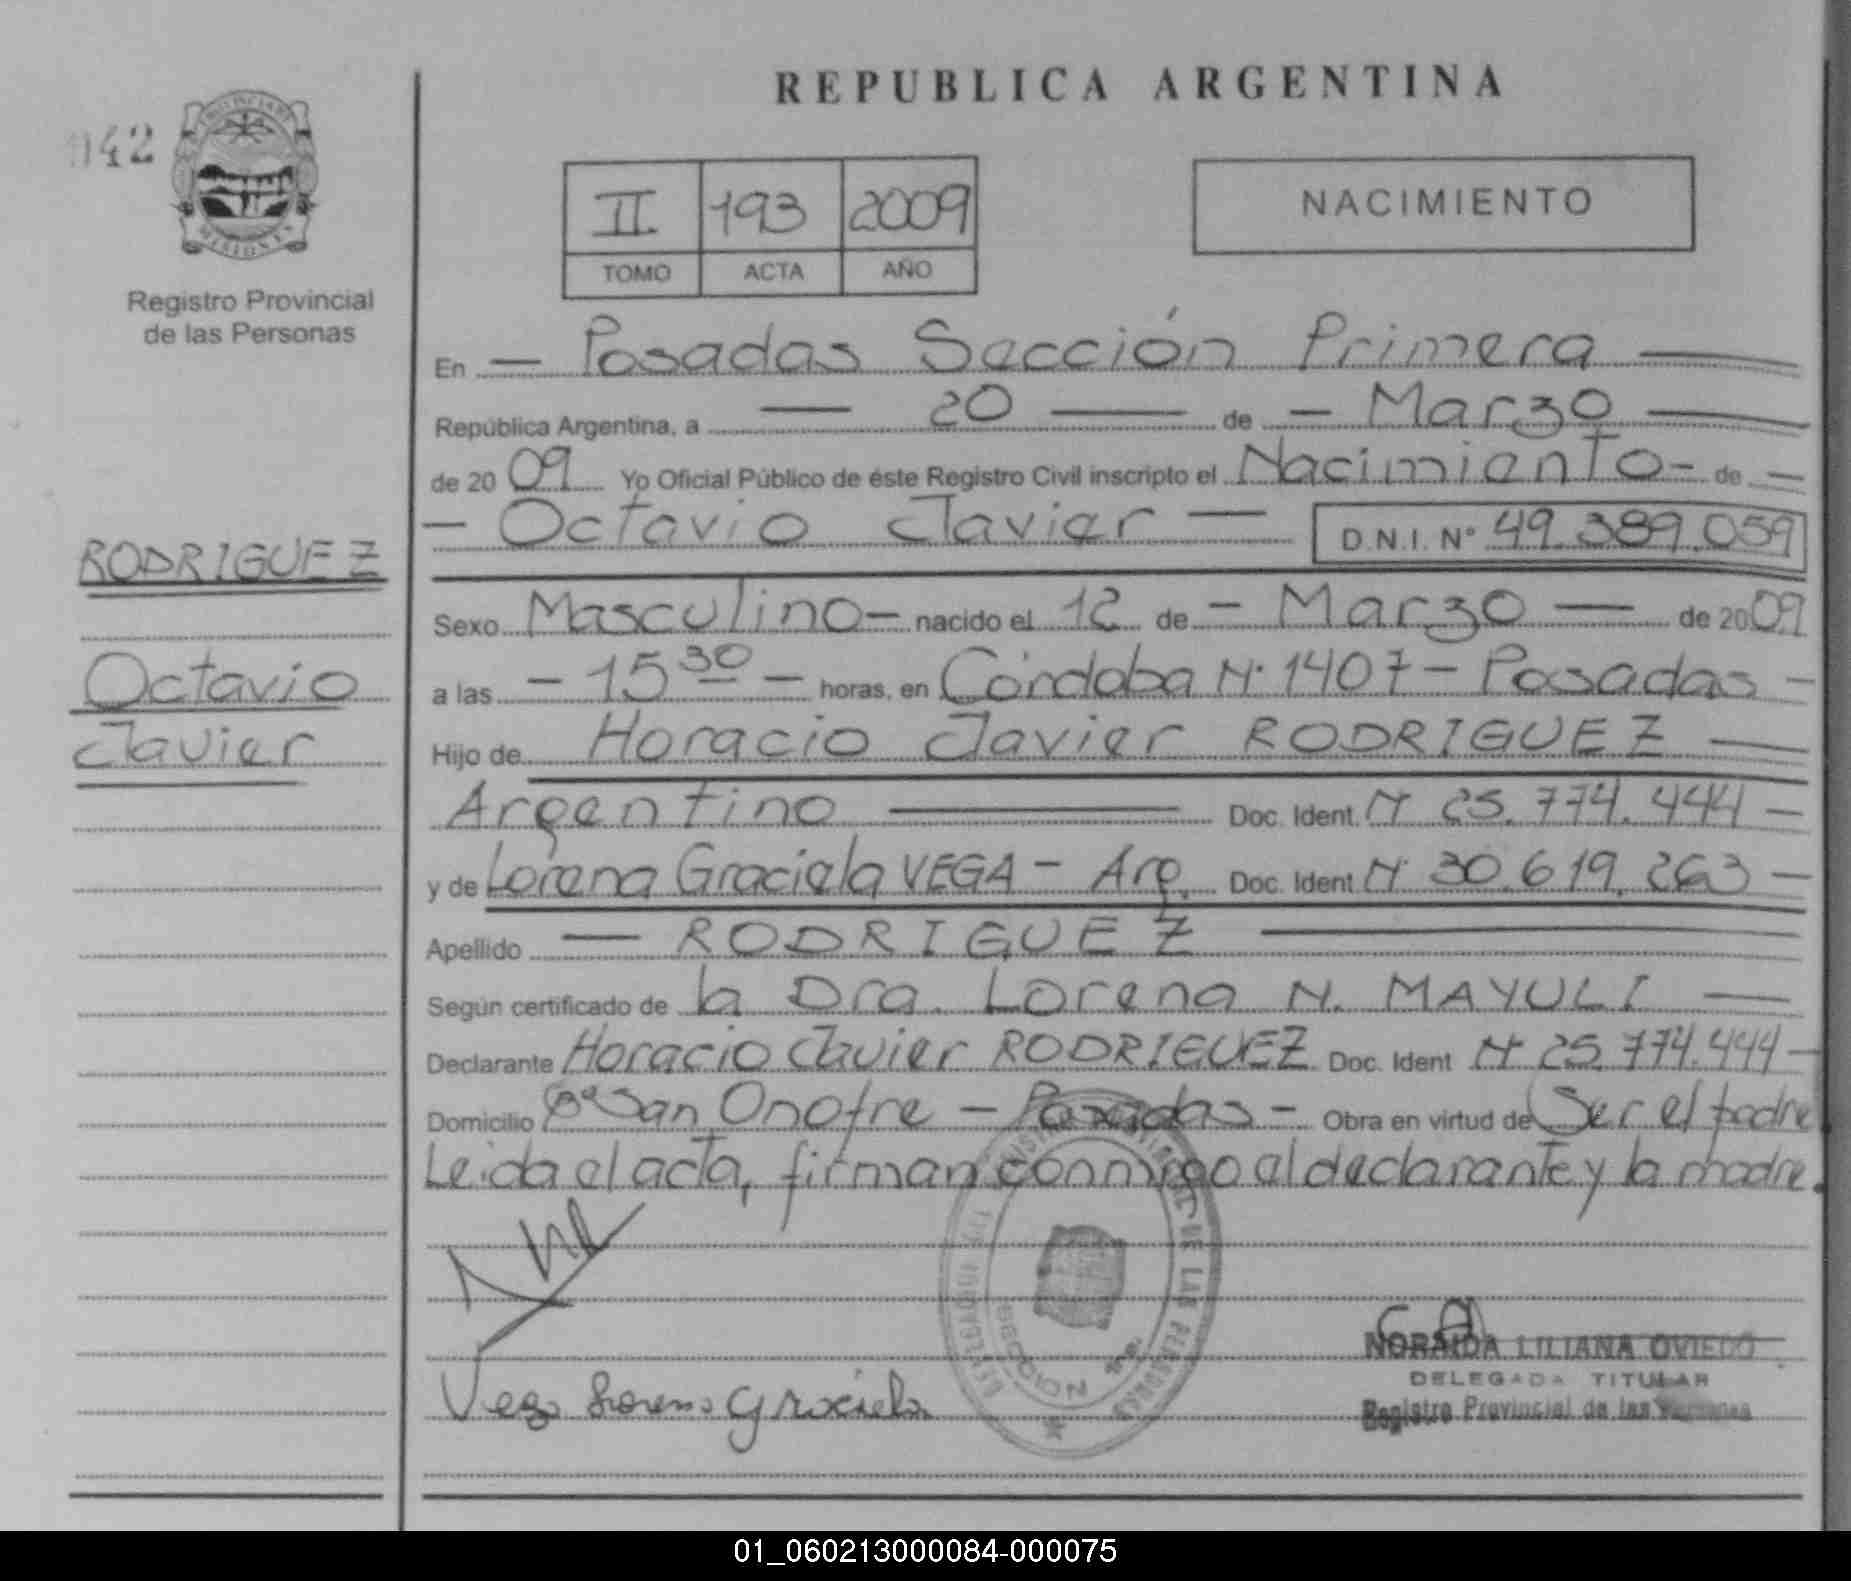 REPUBLICA ARGENTINA
042
PROVINCIA DE
MISIONES
Registro Provincial
de las Personas
II 193 2009
TOMO ACTA AÑO
NACIMIENTO
En — Posadas Sección Primera —
República Argentina, a — 20 — de — Marzo —
de 2009 Yo Oficial Público de éste Registro Civil inscripto el Nacimiento - de —
— Octavio Javier — D.N.I. N° 49.389.059
RODRIGUEZ
Octavio
Javier
Sexo Masculino — nacido el 12 de — Marzo — de 2009
a las — 15 30 — horas, en Córdoba N° 1407 — Posadas —
Hijo de Horacio Javier RODRIGUEZ —
Argentino — Doc. Ident. N° 25.774.444 —
y de Lorena Graciela VEGA — Arg. Doc. Ident N° 30.619.263 —
Apellido — RODRIGUEZ —
Según certificado de la Dra. Lorena N. MAYULI —
Declarante Horacio Javier RODRIGUEZ Doc. Ident N° 25.774.444 —
Domicilio B° San Onofre — Posadas — Obra en virtud de Ser el padre
Leida el acta, firman conmigo el declarante y la madre.
Vega Lorena Graciela
NORAIDA LILIANA OVIEDO
DELEGADA TITULAR
Registro Provincial de las Personas
01_060213000084-000075